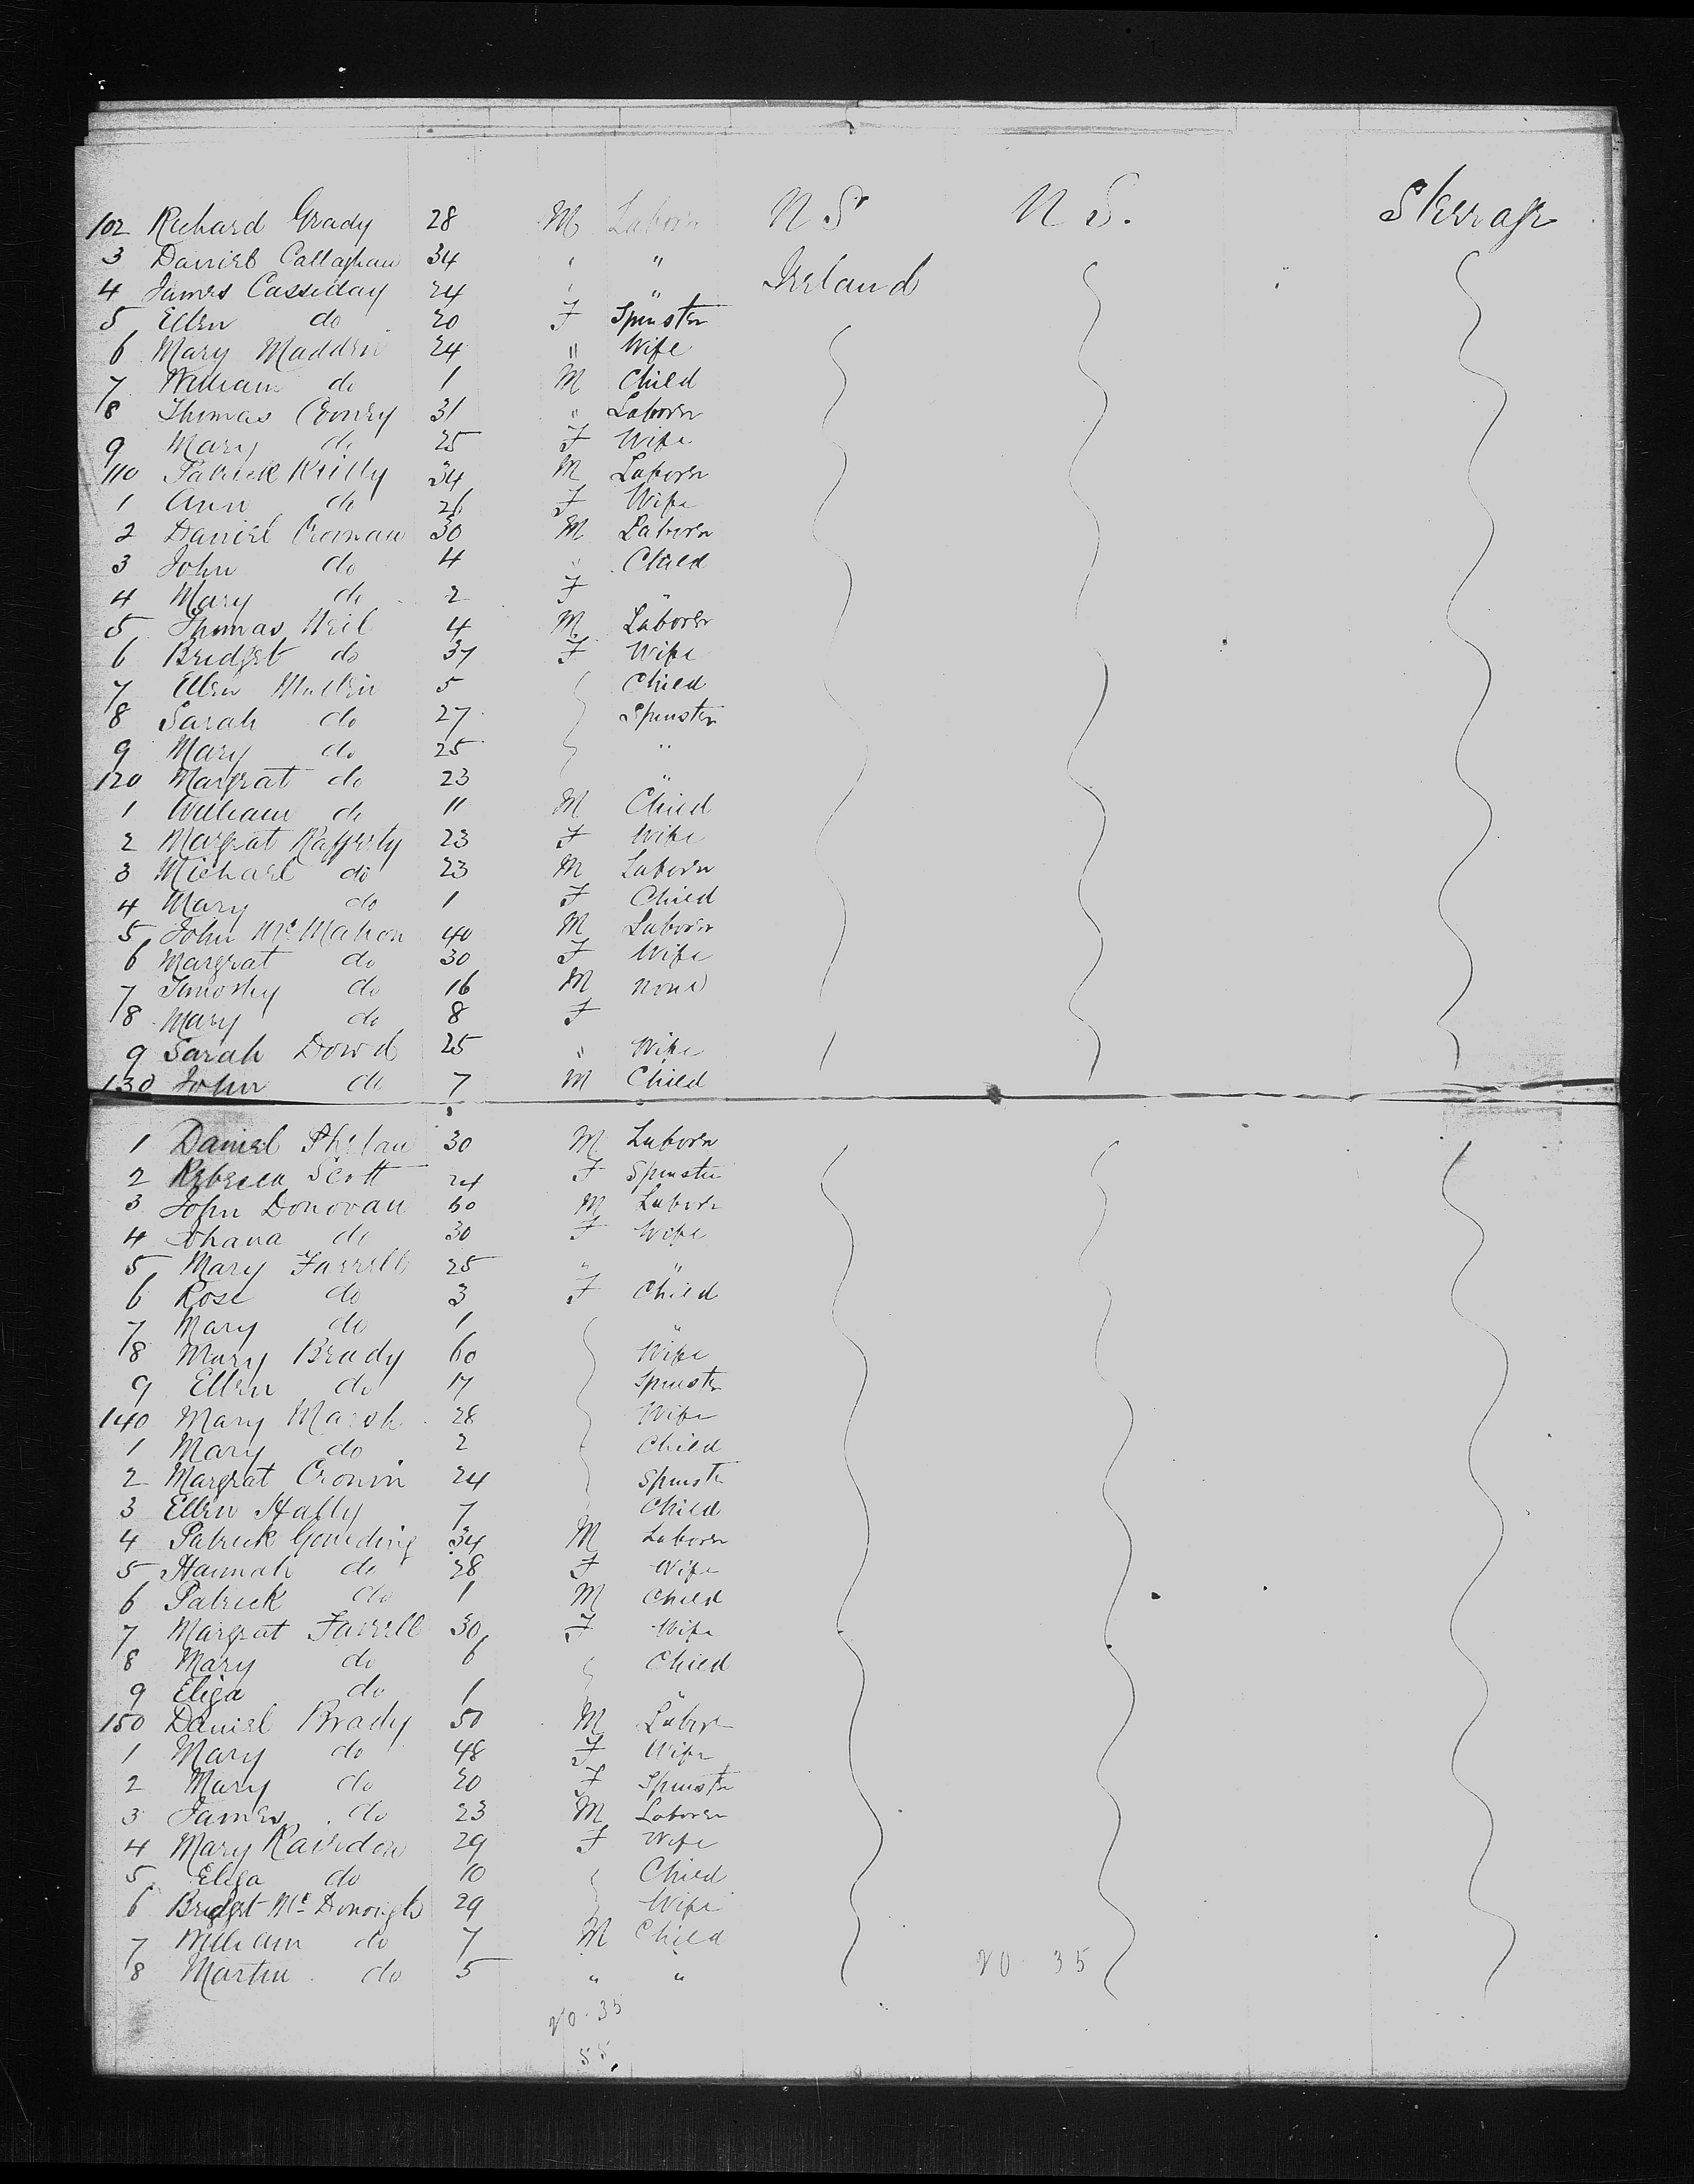 102 Richard Grady 28 M Laborer N S N S. Steerage
3 Daniel Callaghan 34 " "
4 James Cassiday 24 " " Ireland
5 Ellen do 20 F Spinster
6 Mary Madden 24 " Wife
7 William do 1 M Child
8 Thomas Conrey 31 " Laborer
9 Mary do 25 F Wife
110 Patrick Reilly 34 M Laborer
1 Ann do 26 F Wife
2 Daniel Cronan 30 M Laborer
3 John do 4 " Child
4 Mary do 2 F "
5 Thomas Neil 4 M Laborer
6 Bridget do 37 F Wife
7 Ellen Mullin 5 Child
8 Sarah do 27 Spinster
9 Mary do 25 "
120 Margrat do 23 "
1 William do 11 M Child
2 Margrat Rafferty 23 F Wife
3 Michael do 23 M Laborer
4 Mary do 1 F Child
5 John McMahon 40 M Laborer
6 Margrat do 30 F Wife
7 Timothy do 16 M None
8 Mary do 8 F
9 Sarah Dowd 25 " Wife
130 John do 7 M Child
1 Daniel Phelan 30 M Laborer
2 Rebecca Scott 24 F Spinster
3 John Donovan 60 M Laborer
4 Johana do 30 F Wife
5 Mary Farrell 25 " "
6 Rose do 3 F Child
7 Mary do 1 "
8 Mary Brady 60 Wife
9 Ellen do 17 Spinster
140 Mary Marsh 28 Wife
1 Mary do 2 Child
2 Margrat Cronin 24 Spinster
3 Ellen Hally 7 Child
4 Patrick Goulding 34 M Laborer
5 Hannah do 28 F Wife
6 Patrick do 1 M Child
7 Margrat Farrell 30 F Wife
8 Mary do 6 Child
9 Eliza do 1 "
150 Daniel Brady 50 M Laborer
1 Mary do 48 F Wife
2 Mary do 20 F Spinster
3 James do 23 M Laborer
4 Mary Rairdon 29 F Wife
5 Eliza do 10 Child
6 Bridget McDonough 29 Wife
7 William do 7 M Child
8 Martin do 5 " "
20 35
20 · 35
55